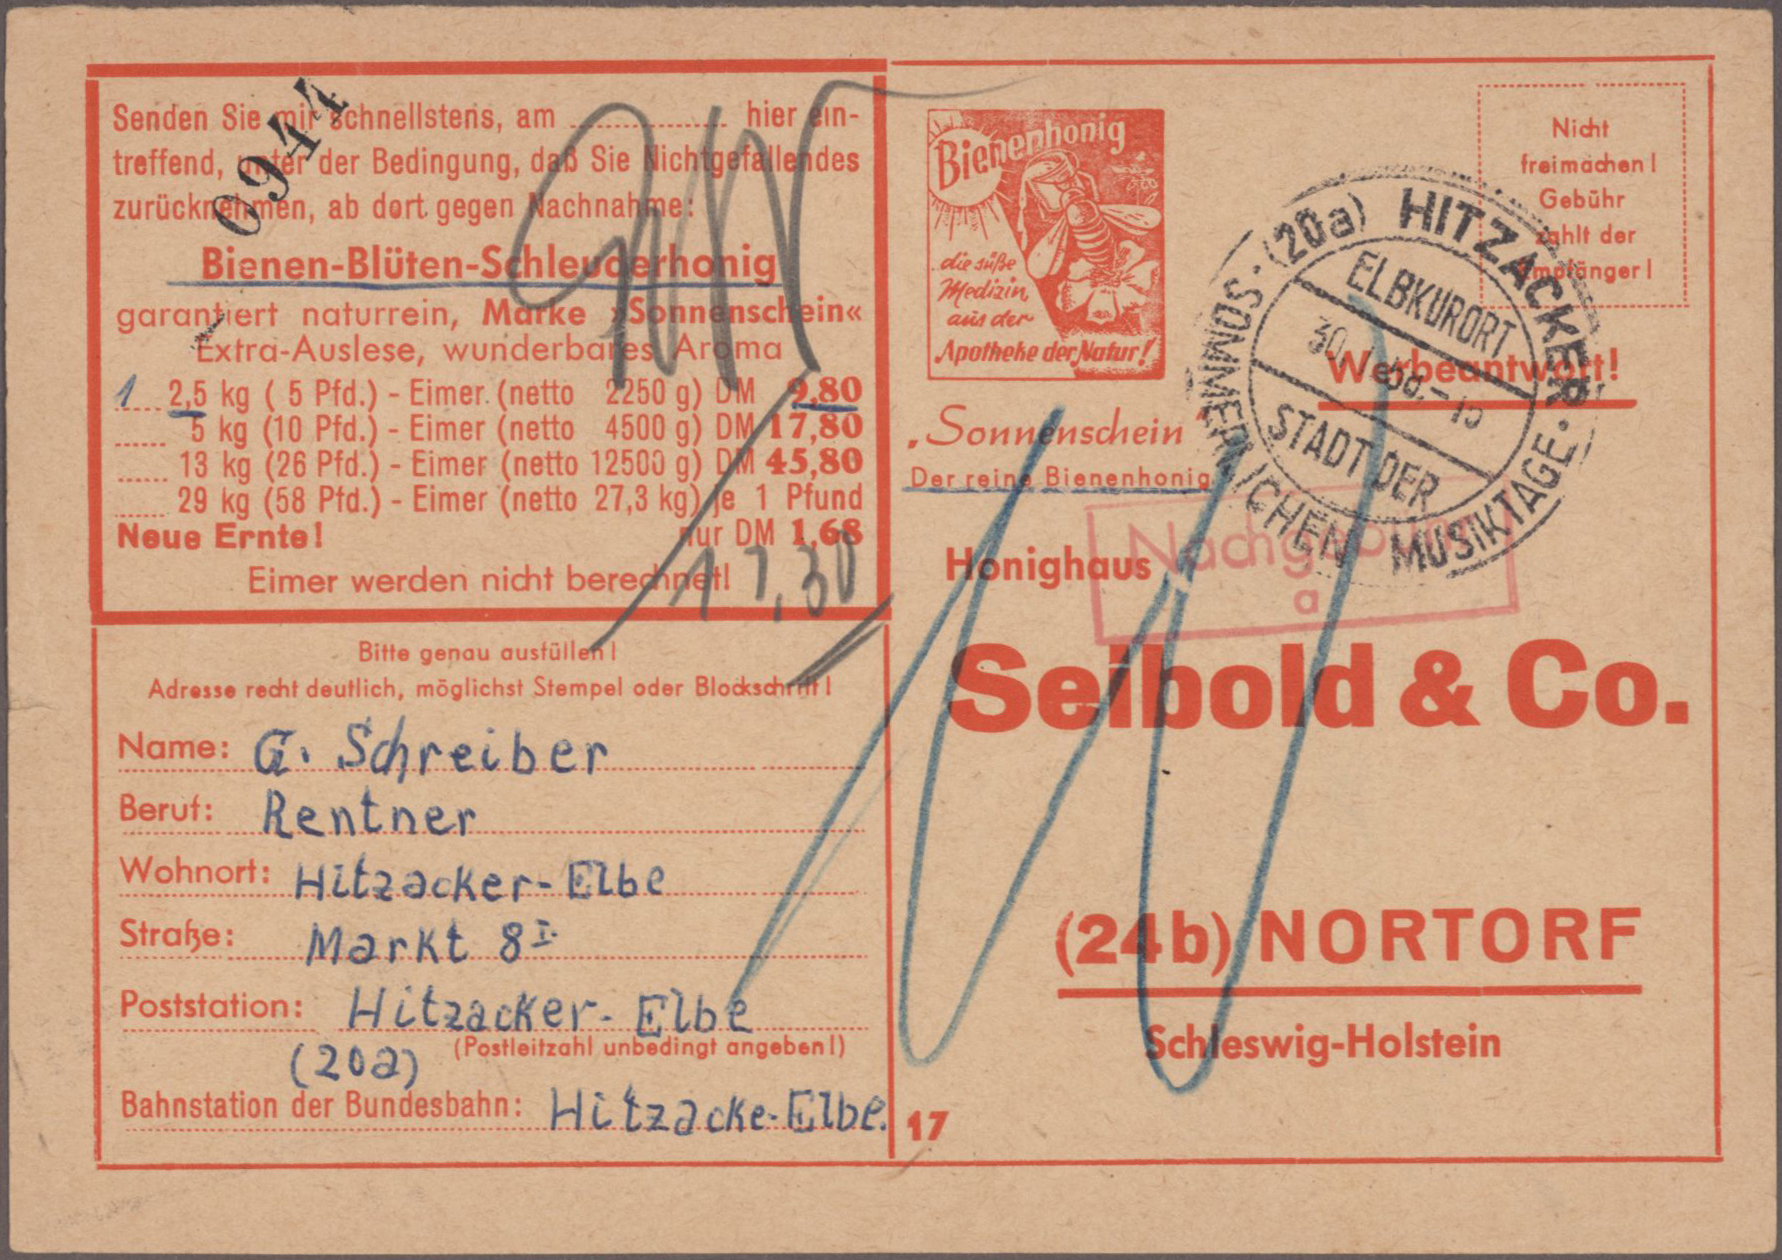 0944
Senden Sie mir schnellstens, am ........ hier ein-
treffend, unter der Bedingung, daß Sie Nichtgefallendes
zurücknehmen, ab dort gegen Nachnahme:
Bienen-Blüten-Schleuderhonig
garantiert naturrein, Marke »Sonnenschein«
Extra-Auslese, wunderbares Aroma
1 2,5 kg ( 5 Pfd.) - Eimer (netto 2250 g) DM 9,80
..... 5 kg (10 Pfd.) - Eimer (netto 4500 g) DM 17,80
..... 13 kg (26 Pfd.) - Eimer (netto 12500 g) DM 45,80
..... 29 kg (58 Pfd.) - Eimer (netto 27,3 kg) je 1 Pfund
Neue Ernte! nur DM 1,68
Eimer werden nicht berechnet!
Bitte genau ausfüllen!
Adresse recht deutlich, möglichst Stempel oder Blockschrift!
Name: G. Schreiber
Beruf: Rentner
Wohnort: Hitzacker-Elbe
Straße: Markt 8 I.
Poststation: Hitzacker-Elbe
(20a) (Postleitzahl unbedingt angeben!)
Bahnstation der Bundesbahn: Hitzacke-Elbe.
Bienenhonig
die süße
Medizin
aus der
Apotheke der Natur!
„Sonnenschein
Der reine Bienenhonig
Nicht
freimachen!
Gebühr
zahlt der
Empfänger!
Werbeantwort!
(20a) HITZACKER
ELBKURORT
STADT DER
SOMMERLICHEN MUSIKTAGE
Nachgebühr
a
Honighaus
Seibold & Co.
(24b) NORTORF
Schleswig-Holstein
17